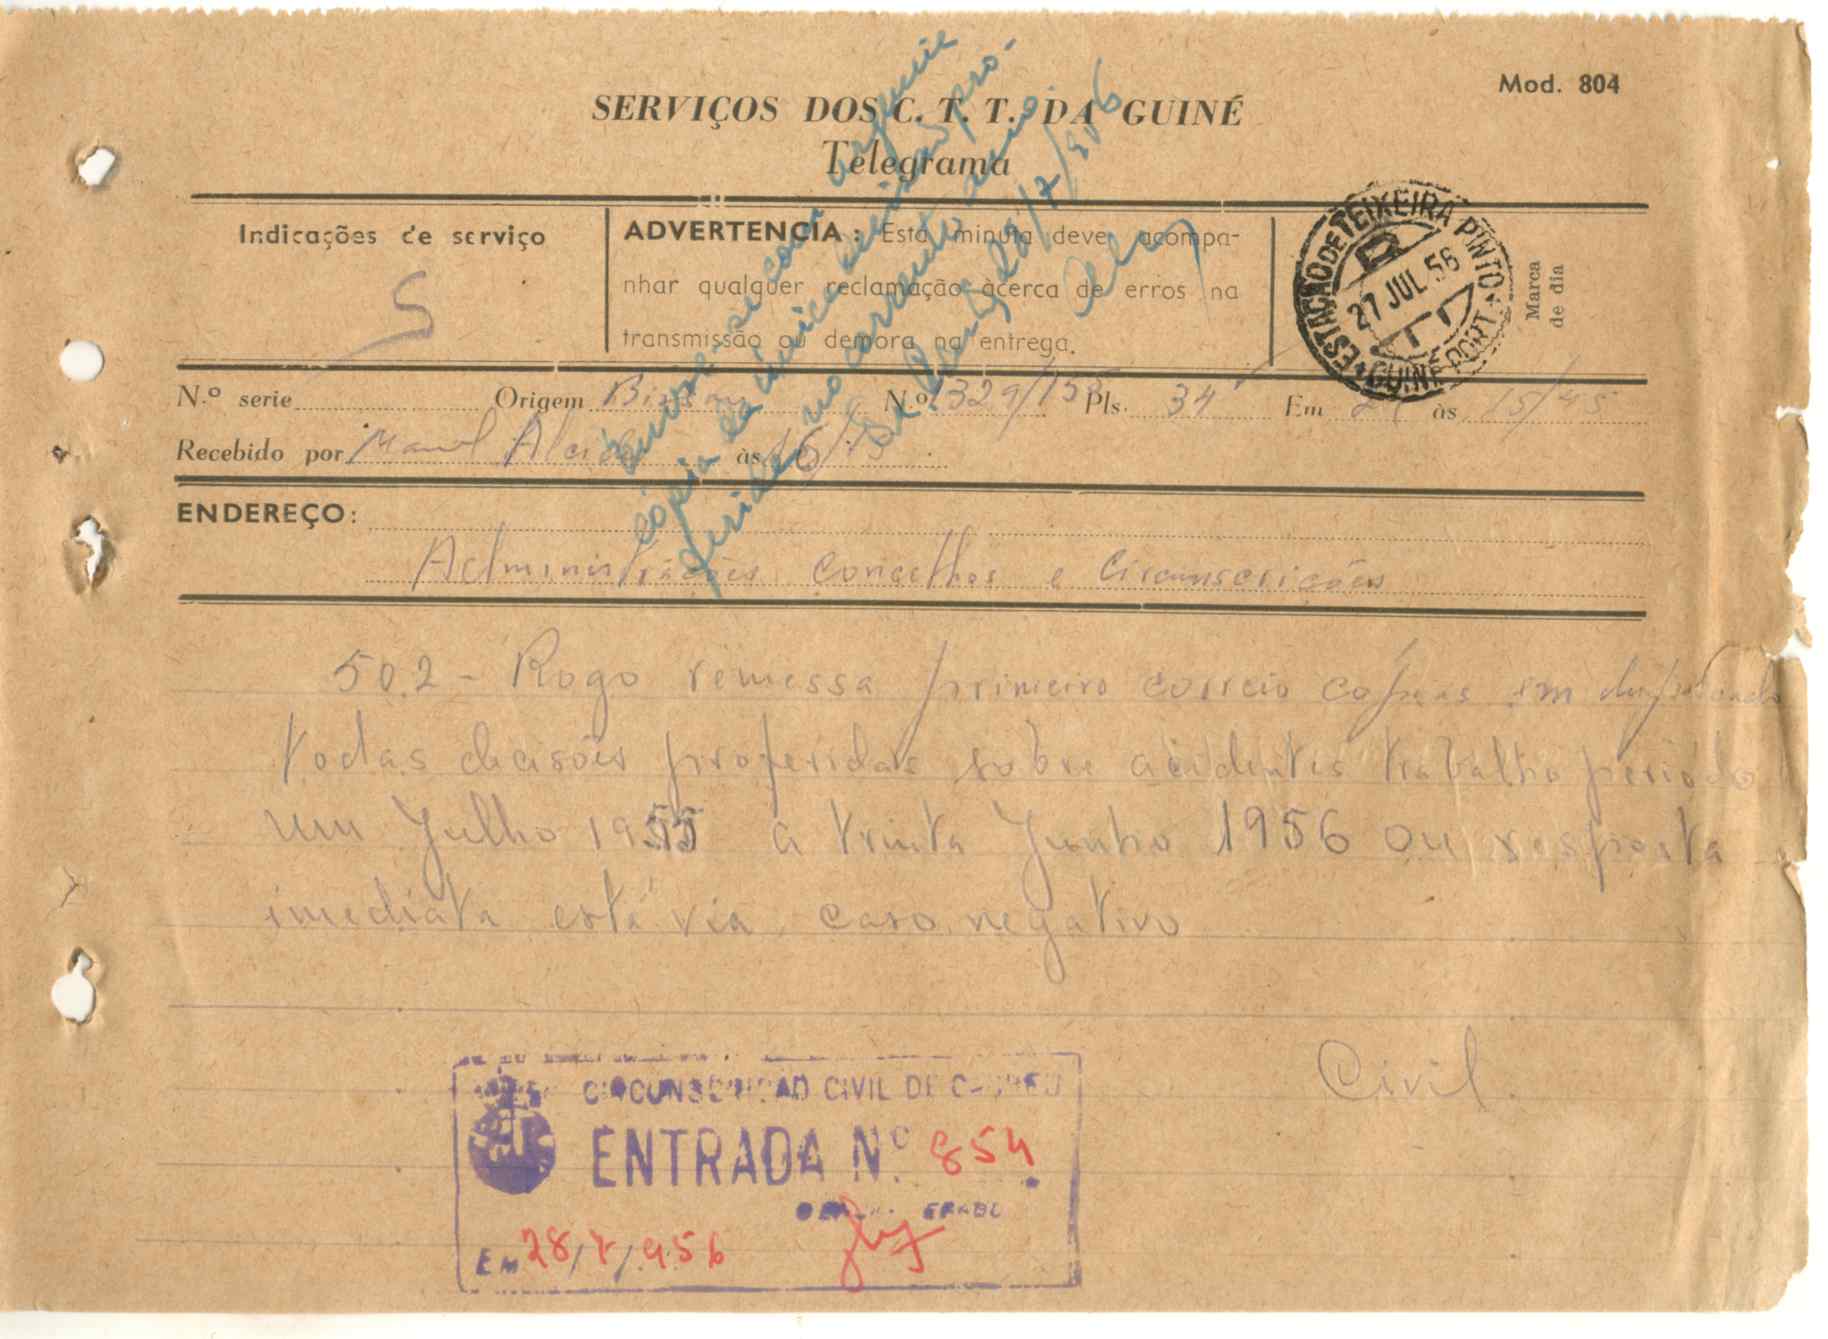 Mod. 804
SERVIÇOS DOS C. T. T. DA GUINÉ
Telegrama
Indicações de serviço
S
ADVERTENCIA : Esta minuta deve acompa-
nhar qualquer reclamação àcerca de erros na
transmissão ou demora na entrega.
ESTAÇÃO DE TEIXEIRA PINTO
27 JUL 56
GUINÉ PORT.
Marca
de dia
N.º serie Origem Bissau N.º 1329/158 Pls. 34 Em às 15/45
Recebido por Manuel às 16/15
ENDEREÇO:
Administrações Concelhos e Circunscrições
502 - Rogo remessa primeiro correio copias em duplicado
todas decisões proferidas sobre acidentes trabalho periodo
um Julho 1955 a trinta Junho 1956 ou resposta
imediata está via caso negativo
Civil
-se com urgencia
cópia da única decisão pro-
ferida no corrente ano.
28/7/956
CIRCUNSCRIÇÃO CIVIL DE CACHEU
ENTRADA Nº 854
EM 28/7/956